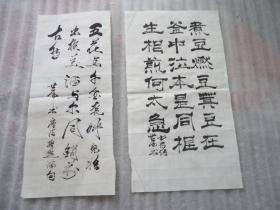 煮豆燃豆萁豆在
釜中泣本是同根
生相煎何太急
五花马千金裘呼儿将
出换美酒与尔同销万
古愁